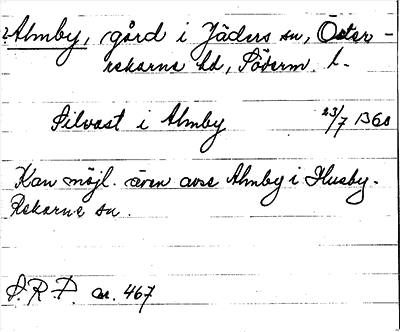 ? Almby, gård i Jäders sn, Öster-
rekarne hd, Söderm. l.
Silvast i Almby 23/7 1360
Kan möjl. även avse Almby i Husby-
Rekarne sn.
S.R.P. nr. 467